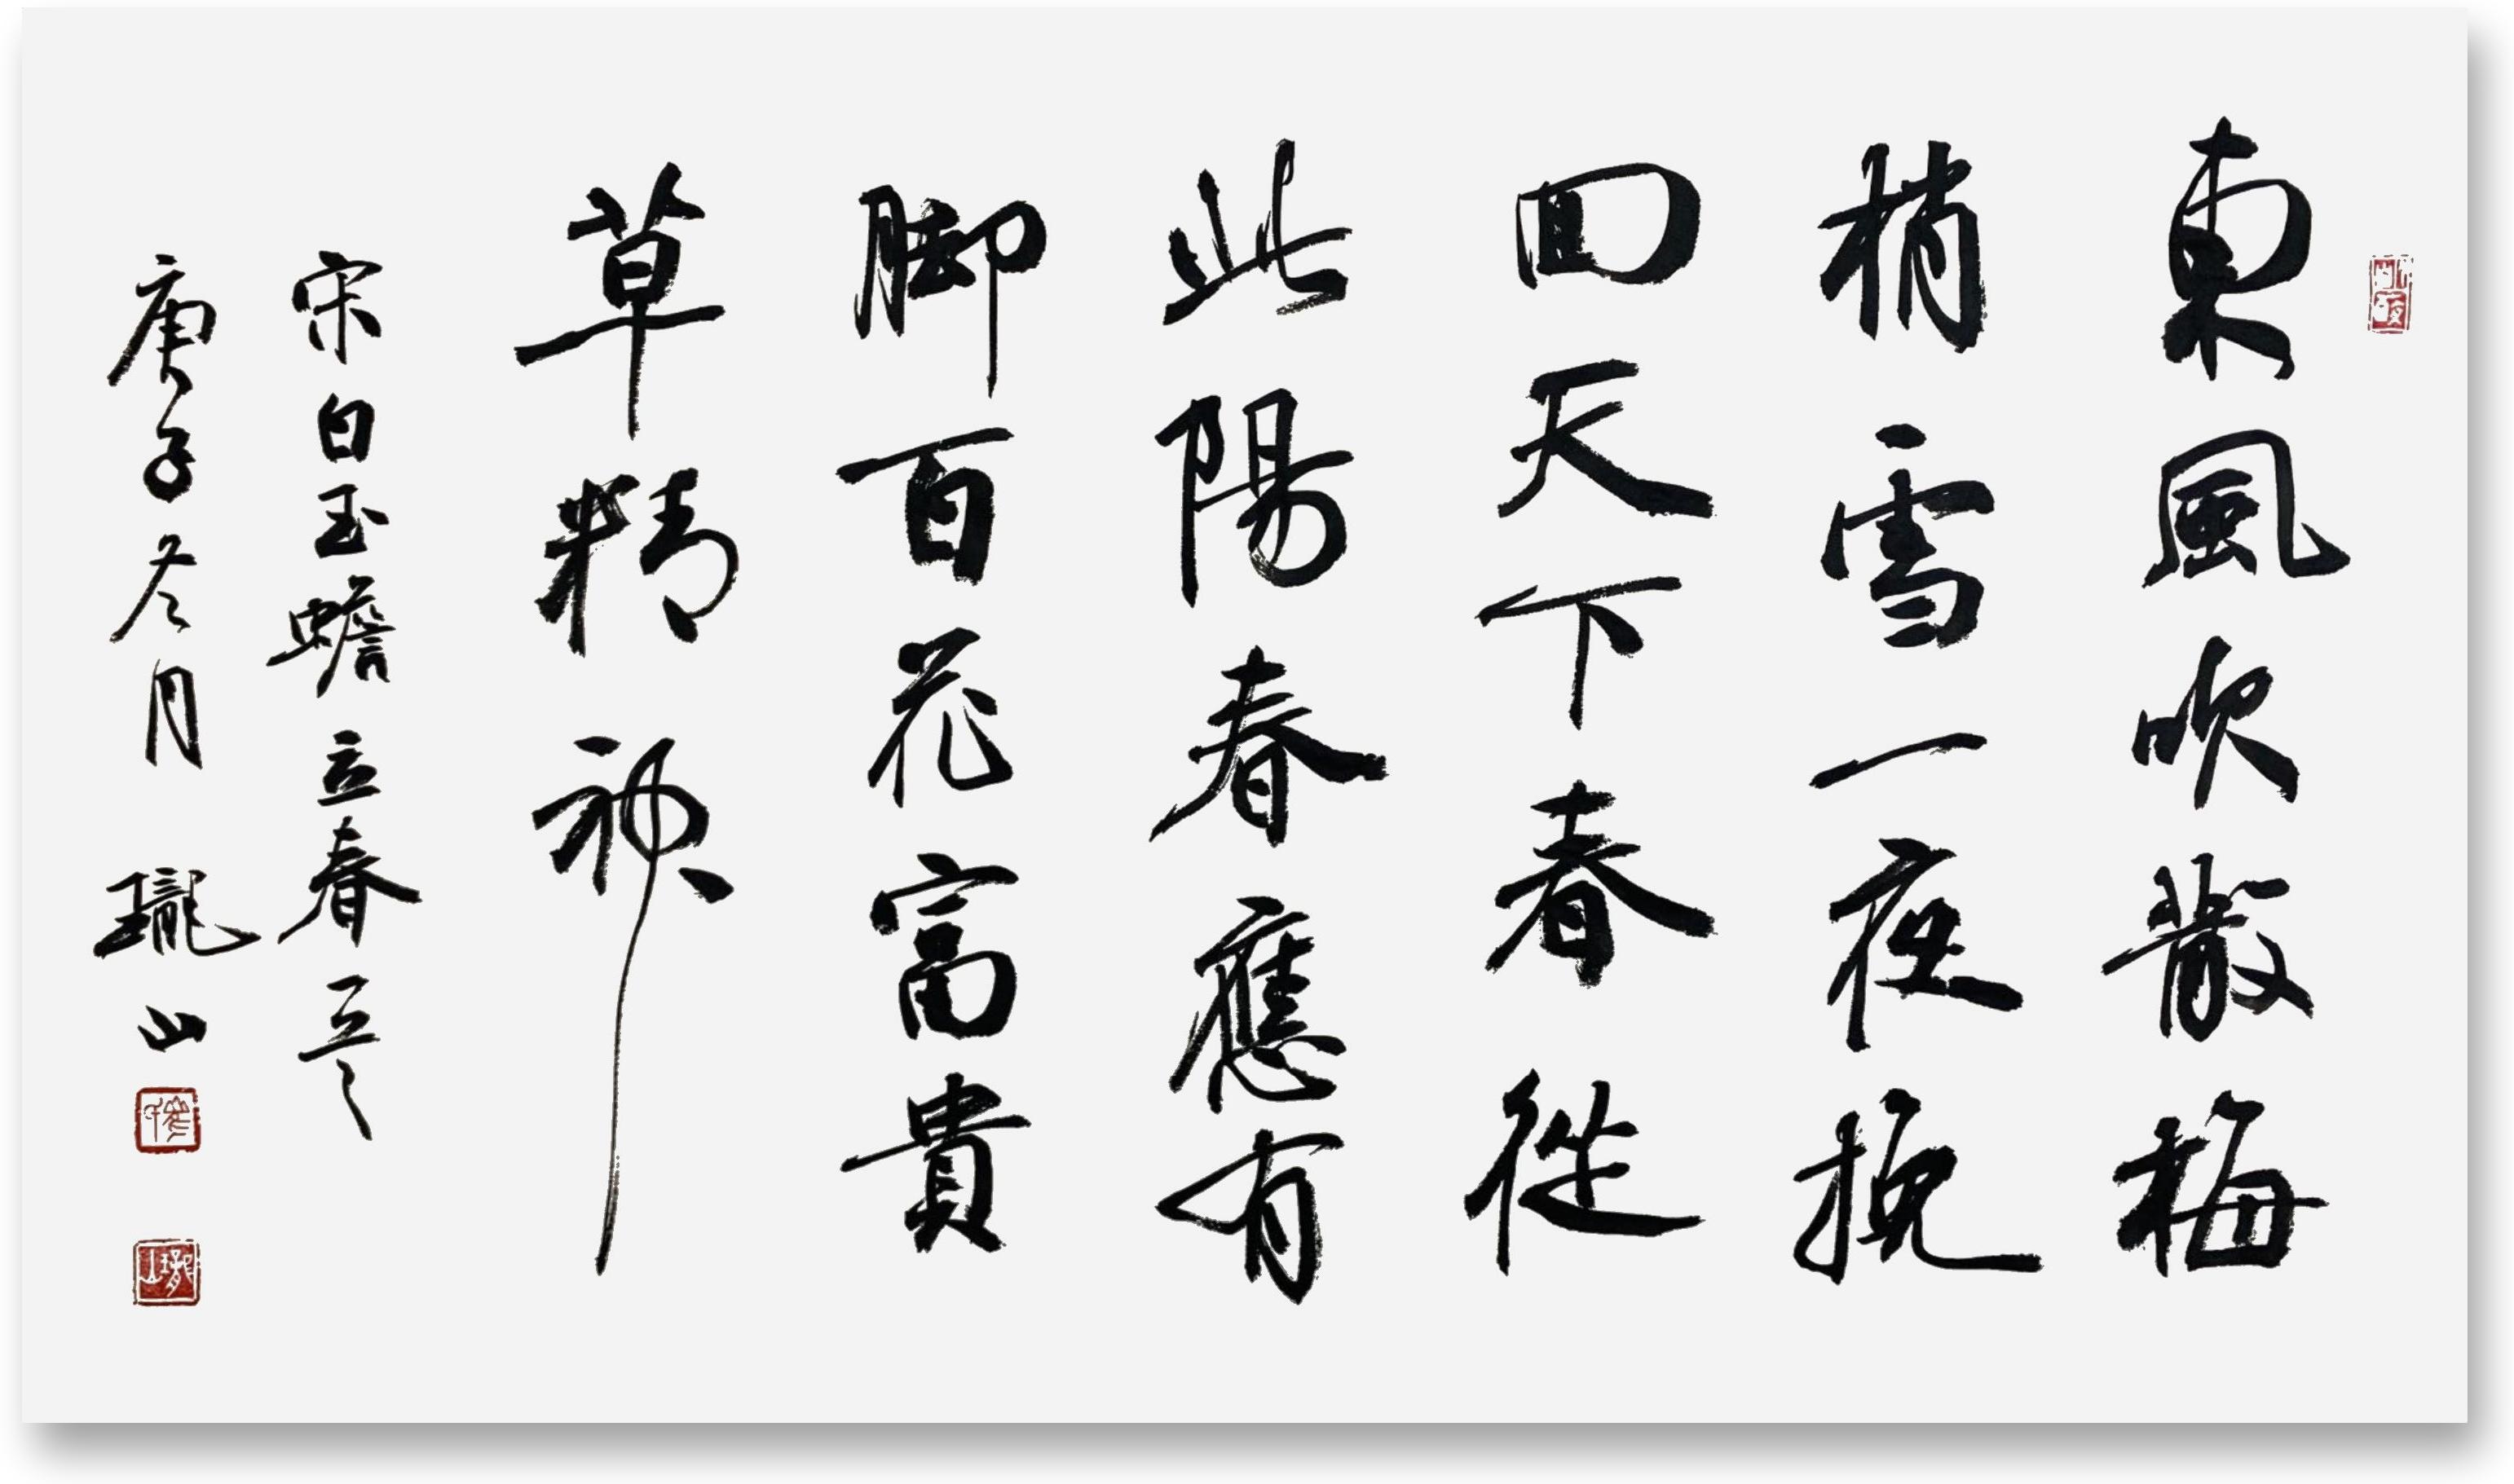 東風吹散梅
梢雪一夜挽
回天下春從
此陽春應有
脚百花富貴
草精神
宋白玉蟾立春五言
庚子冬月瓏山